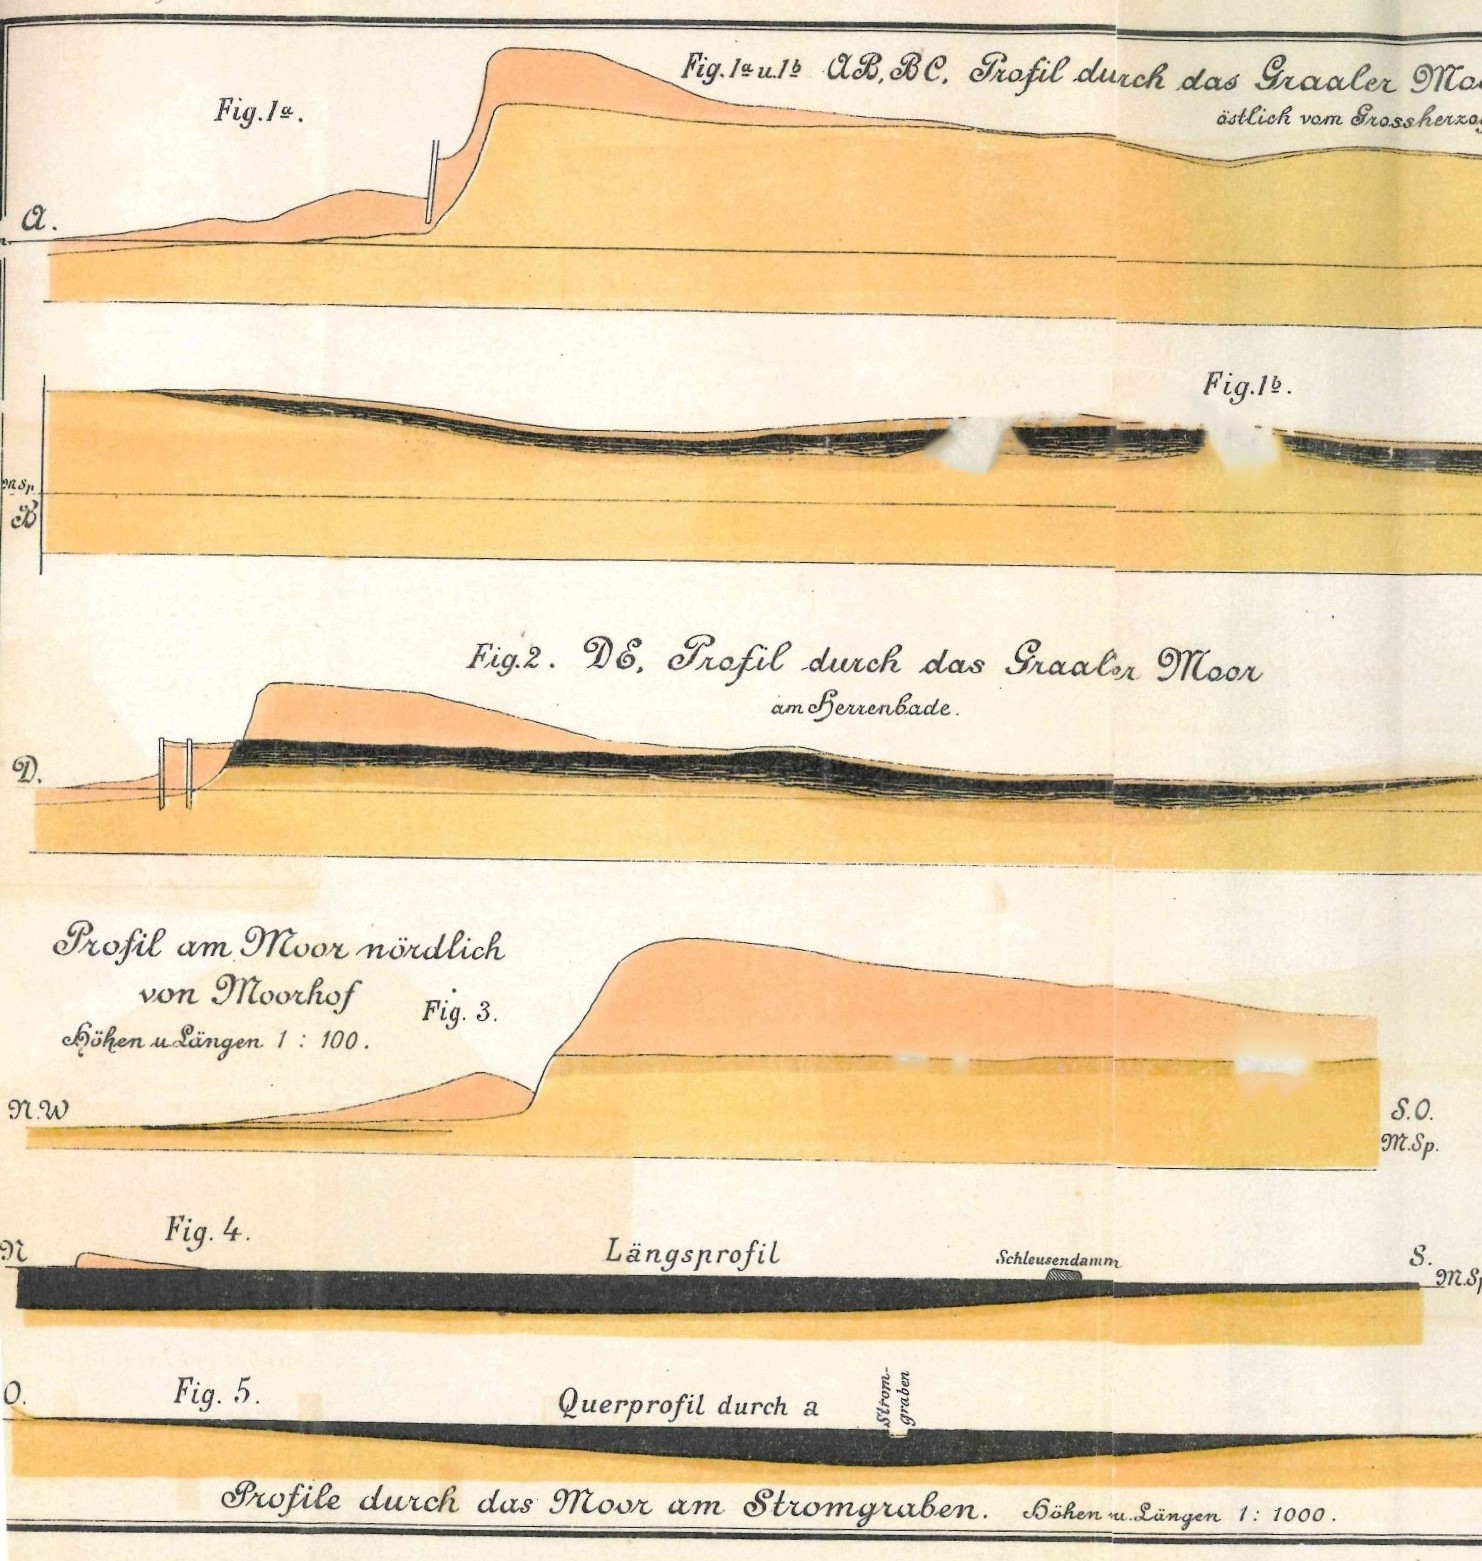 Fig.1a u.1b AB, BC, Profil durch das Graaler
östlich vom
Fig.1a.
A.
Fig.1b.
M.Sp.
B
Fig.2. DE, Profil durch das Graaler Moor
am Herrenbade.
D.
Profil am Moor nördlich
von Moorhof
Fig. 3.
Höhen u. Längen 1 : 100.
N.W
S.O.
M.Sp.
Fig. 4.
N
Längsprofil
Schleusendamm
S.
M.Sp
O.
Fig. 5.
Querprofil durch a
Strom-
graben
Profile durch das Moor am Stromgraben. Höhen u. Längen 1 : 1000.